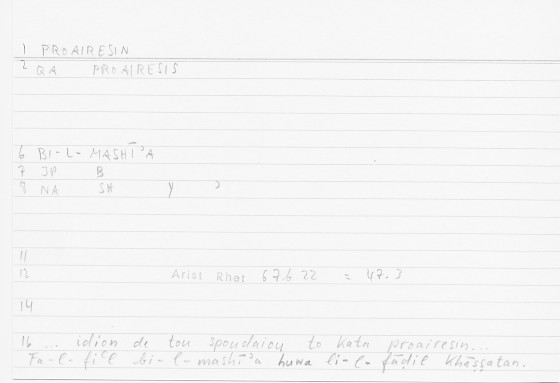 1 PROAIRESIN
2 QA PROAIRESIS
6 BI-L-MASHĪʾA
7 JP B
8 NA SH Y ʾ
11
12 Arist Rhet 67b 22 = 47.3
14
16 ... idion de tou spoudaiou to kata proairesin...
Fa-l-fiʿl bi-l-mashīʾa huwa li-l-fāḍil khāṣṣatan.